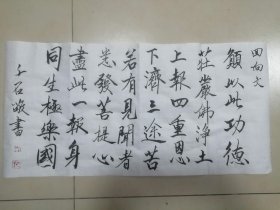 回向文
願以此功德
莊嚴佛淨土
上報四重恩
下濟三途苦
若有見聞者
悉發菩提心
盡此一報身
同生極樂國